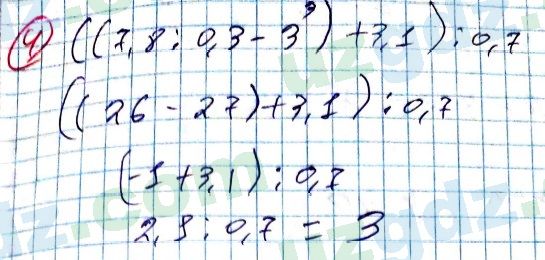 4) ((7,8 : 0,3 - 3³) + 3,1) : 0,7
((26 - 27) + 3,1) : 0,7
(-1 + 3,1) : 0,7
2,1 : 0,7 = 3